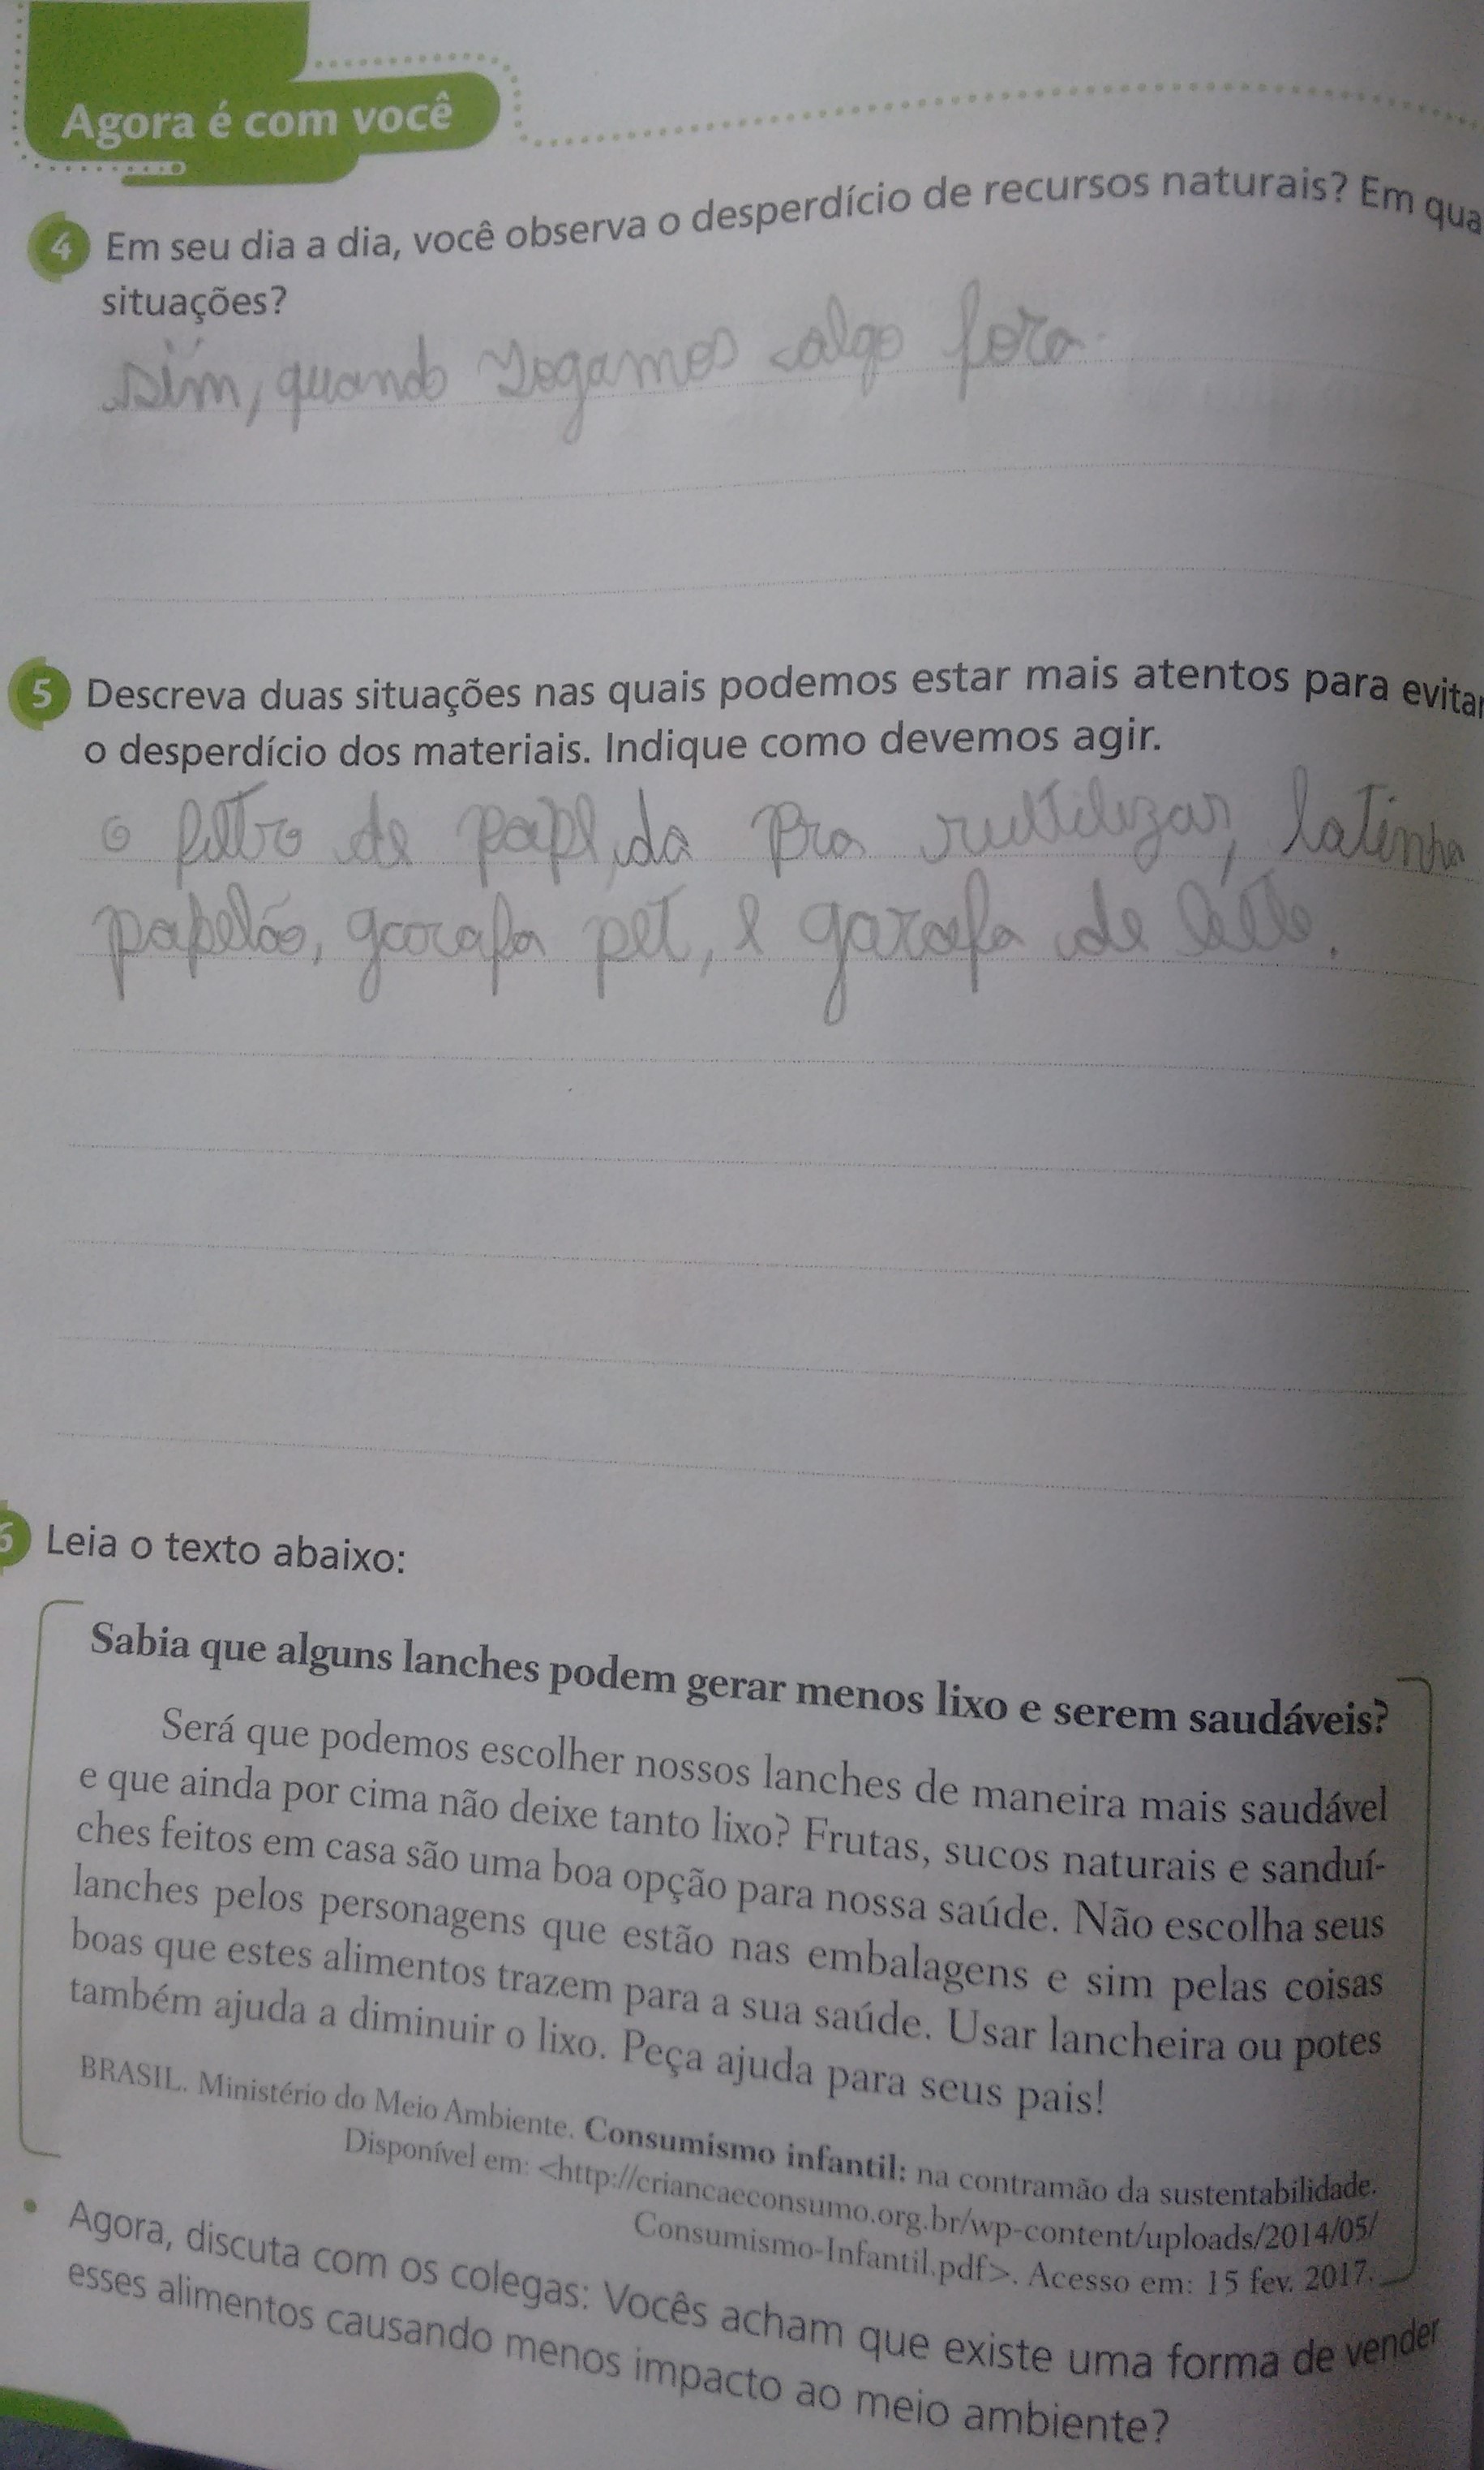 Agora é com você
4 Em seu dia a dia, você observa o desperdício de recursos naturais? Em qua
situações?
sim, quando Jogamos algo fora.
5 Descreva duas situações nas quais podemos estar mais atentos para evitar
o desperdício dos materiais. Indique como devemos agir.
o filtro de papel, da pra reutilizar, latinha
papelão, garrafa pet, e garrafa de leite.
6 Leia o texto abaixo:
Sabia que alguns lanches podem gerar menos lixo e serem saudáveis?
Será que podemos escolher nossos lanches de maneira mais saudável
e que ainda por cima não deixe tanto lixo? Frutas, sucos naturais e sanduí-
ches feitos em casa são uma boa opção para nossa saúde. Não escolha seus
lanches pelos personagens que estão nas embalagens e sim pelas coisas
boas que estes alimentos trazem para a sua saúde. Usar lancheira ou potes
também ajuda a diminuir o lixo. Peça ajuda para seus pais!
BRASIL. Ministério do Meio Ambiente. Consumismo infantil: na contramão da sustentabilidade.
Disponível em: <http://criancaeconsumo.org.br/wp-content/uploads/2014/05/
Consumismo-Infantil.pdf>. Acesso em: 15 fev. 2017.
• Agora, discuta com os colegas: Vocês acham que existe uma forma de vender
esses alimentos causando menos impacto ao meio ambiente?